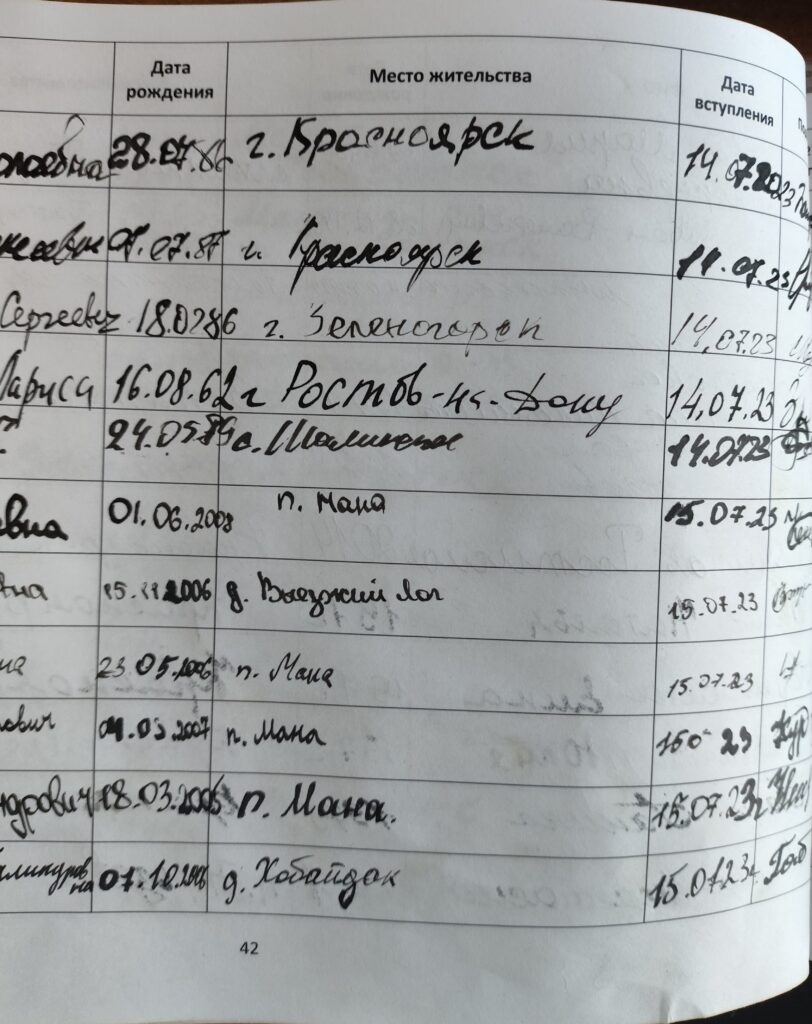 Дата рождения Место жительства Дата вступления
28.07.86 г. Красноярск 14.07.2023
07.07.87 г. Красноярск 14.07.23
Сергеевич 18.0286 г. Зеленогорск 14.07.23
Лариса 16.08.62 г Ростов-на-Дону 14.07.23
24.05.89 с. Шалинское 14.07.23
евна 01.06.2008 п. Мана 15.07.23
вна 15.11.2006 д. Выезжий Лог 15.07.23
на 23.05.2006 п. Мана 15.07.23
ович 04.03.2007 п. Мана 23
ндрович 18.03.2005 п. Мана. 15.07.23г
07.10.2006 д. Хабайдак 15.07.23г
42